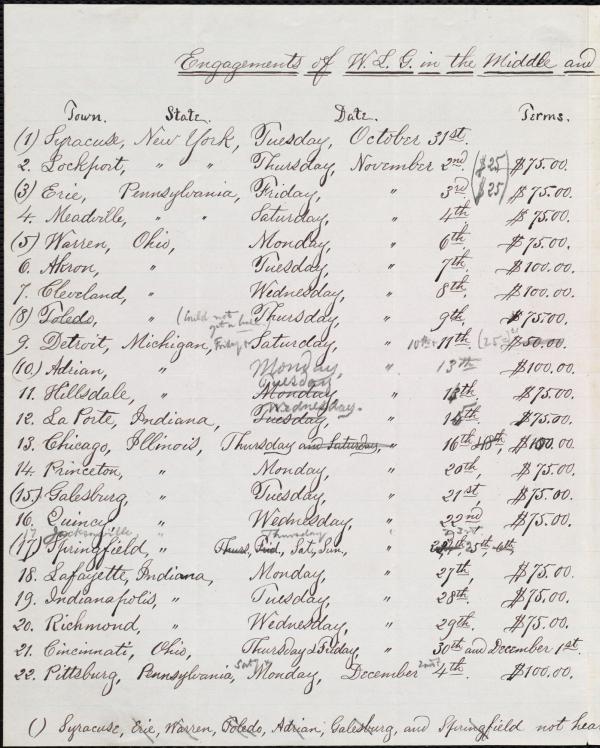 Engagements of W. L. G. in the Middle and
Town. State. Date. Terms.
(1) Syracuse, New York, Tuesday, October 31st.
2. Lockport, " " Thursday, November 2nd ($25) $75.00.
(3) Erie, Pennsylvania, Friday, " 3rd ($25) $75.00.
4. Meadville, " " Saturday, " 4th. $75.00.
(5) Warren, Ohio, Monday, " 6th. $75.00.
6. Akron, " Tuesday, " 7th. $100.00.
7. Cleveland, " Wednesday, " 8th. $100.00.
(8) Toledo, " (Could not get a hall) Thursday, " 9th $75.00.
9. Detroit, Michigan, Friday & Saturday, " 10th & 11th $50.00.
(10.) Adrian, " Monday, " 13th $100.00.
Tuesday
11. Hillsdale, " Monday, " th. $75.00.
Wednesday.
12. La Porte, Indiana, Tuesday, " 15th. $75.00.
13. Chicago, Illinois, Thursday and Saturday, " 16th 18th, $100.00.
14. Princeton, " Monday, " 20th, $75.00.
(15) Galesburg " Tuesday, " 21st, $75.00.
16. Quincy " Wednesday, " 22nd $75.00.
17 Jacksonville, " Thursday " 23rd
(17) Springfield, " Thurs, Frid, Sat, Sun, " 25th,
18. Lafayette, Indiana, Monday, " 27th, $75.00.
19. Indianapolis, " Tuesday, " 28th. $75.00.
20. Richmond, " Wednesday, " 29th. $75.00.
21. Cincinnati, Ohio, Thursday & Friday, " 30th and December 1st.
22. Pittsburg, Pennsylvania, Monday, December 4th. $100.00.
() Syracuse, Erie, Warren, Toledo, Adrian, Galesburg, and Springfield not hea